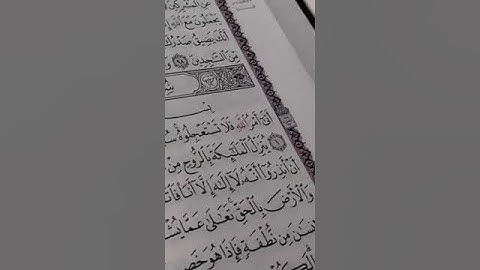 عَنِ ٱلْمُشْرِكِينَ
يَجْعَلُونَ مَعَ ٱللَّهِ
أَنَّكَ يَضِيقُ صَدْرُكَ
مِّنَ ٱلسَّٰجِدِينَ ٩٨
أَتَىٰٓ أَمْرُ ٱللَّهِ فَلَا تَسْتَعْجِلُوهُ
١ يُنَزِّلُ ٱلْمَلَٰٓئِكَةَ بِٱلرُّوحِ مِنْ
أَنْ أَنذِرُوٓا۟ أَنَّهُۥ لَآ إِلَٰهَ إِلَّآ أَنَا۠
وَٱلْأَرْضَ بِٱلْحَقِّ تَعَٰلَىٰ عَمَّا
مِن نُّطْفَةٍ فَإِذَا هُوَ